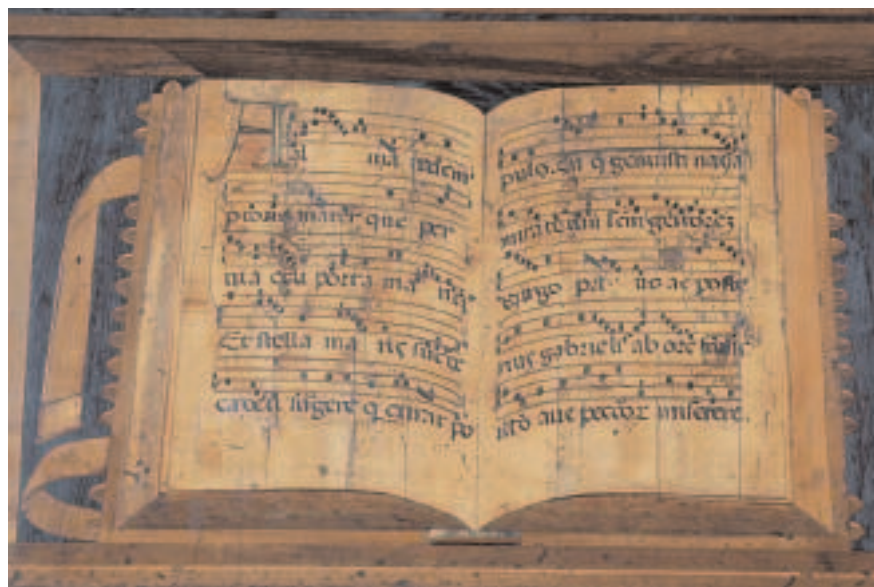 Al ma redem
ptoris mater que per
uia ceu porta ma nes
Et stella ma ris sucure
surgere q curat po
pulo. Tu q genuisti natu
tuu genitorez
uirgo pri us ac poste
rius gabrielis ab ore
aue peccoz miserere.